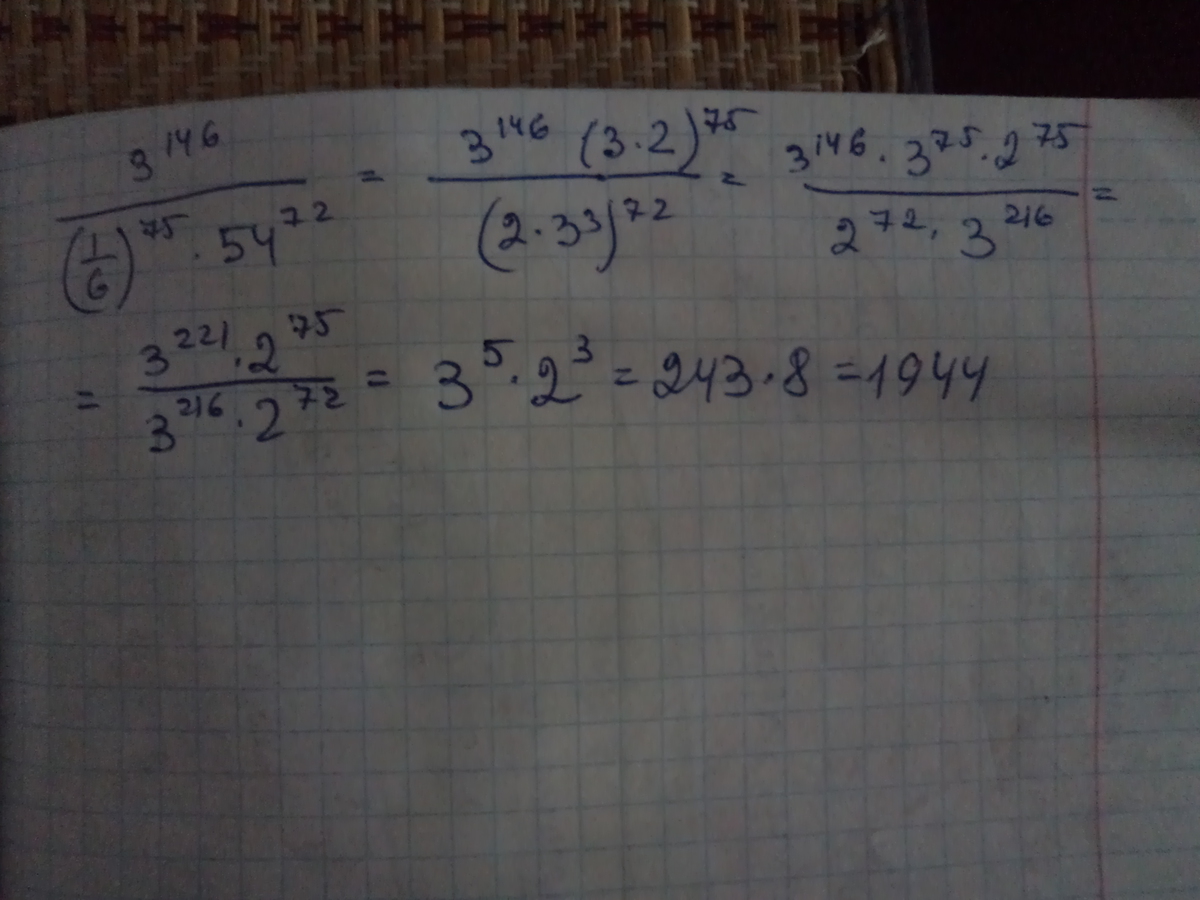 3^146 / ((1/6)^75 · 54^72) = 3^146 (3·2)^75 / (2·3^3)^72 = 3^146 · 3^75 · 2^75 / (2^72 · 3^216) =
= 3^221 · 2^75 / (3^216 · 2^72) = 3^5 · 2^3 = 243 · 8 = 1944